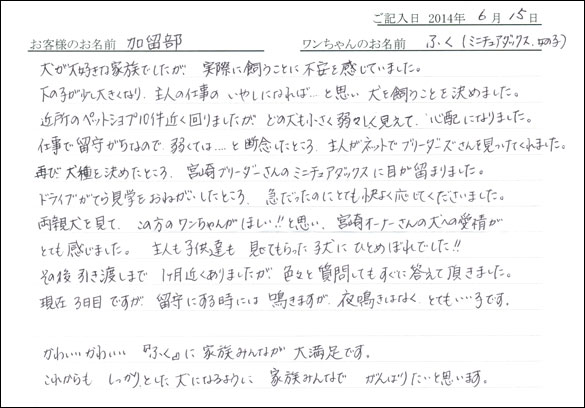 ご記入日 2014年 6月 15日
お客様のお名前 加留部 ワンちゃんのお名前 ふく(ミニチュアダックス.女の子)
犬が大好きな家族でしたが、実際に飼うことに不安を感じていました。
下の子が少し大きくなり、主人の仕事の いやしになれば…と思い 犬を飼うことを決めました。
近所のペットショップ10件近く回りましたが どの犬も小さく弱々しく見えて、心配になりました。
仕事で留守がちなので、弱くては…と断念したところ、主人がネットでブリーダーズさんを見つけてくれました。
再び犬種を決めたところ、宮崎ブリーダーさんのミニチュアダックスに目が留まりました。
ドライブがてら見学をおねがいしたところ、急だったのにとても快よく応じてくださいました。
両親犬を見て、この方のワンちゃんがほしい!!と思い、宮崎オーナーさんの犬への愛情が
とても感じました。 主人も子供達も 見せてもらった子犬にひとめぼれでした!!
その後 引き渡しまで 1ヶ月近くありましたが、色々と質問してもすぐに答えて頂きました。
現在 3日目ですが、留守にする時には 鳴きますが、夜鳴きはなく とてもいい子です。
かわいいかわいい 『ふく』に 家族みんなが 大満足です。
これからも しっかりとした犬になるように 家族みんなで がんばりたいと思います。